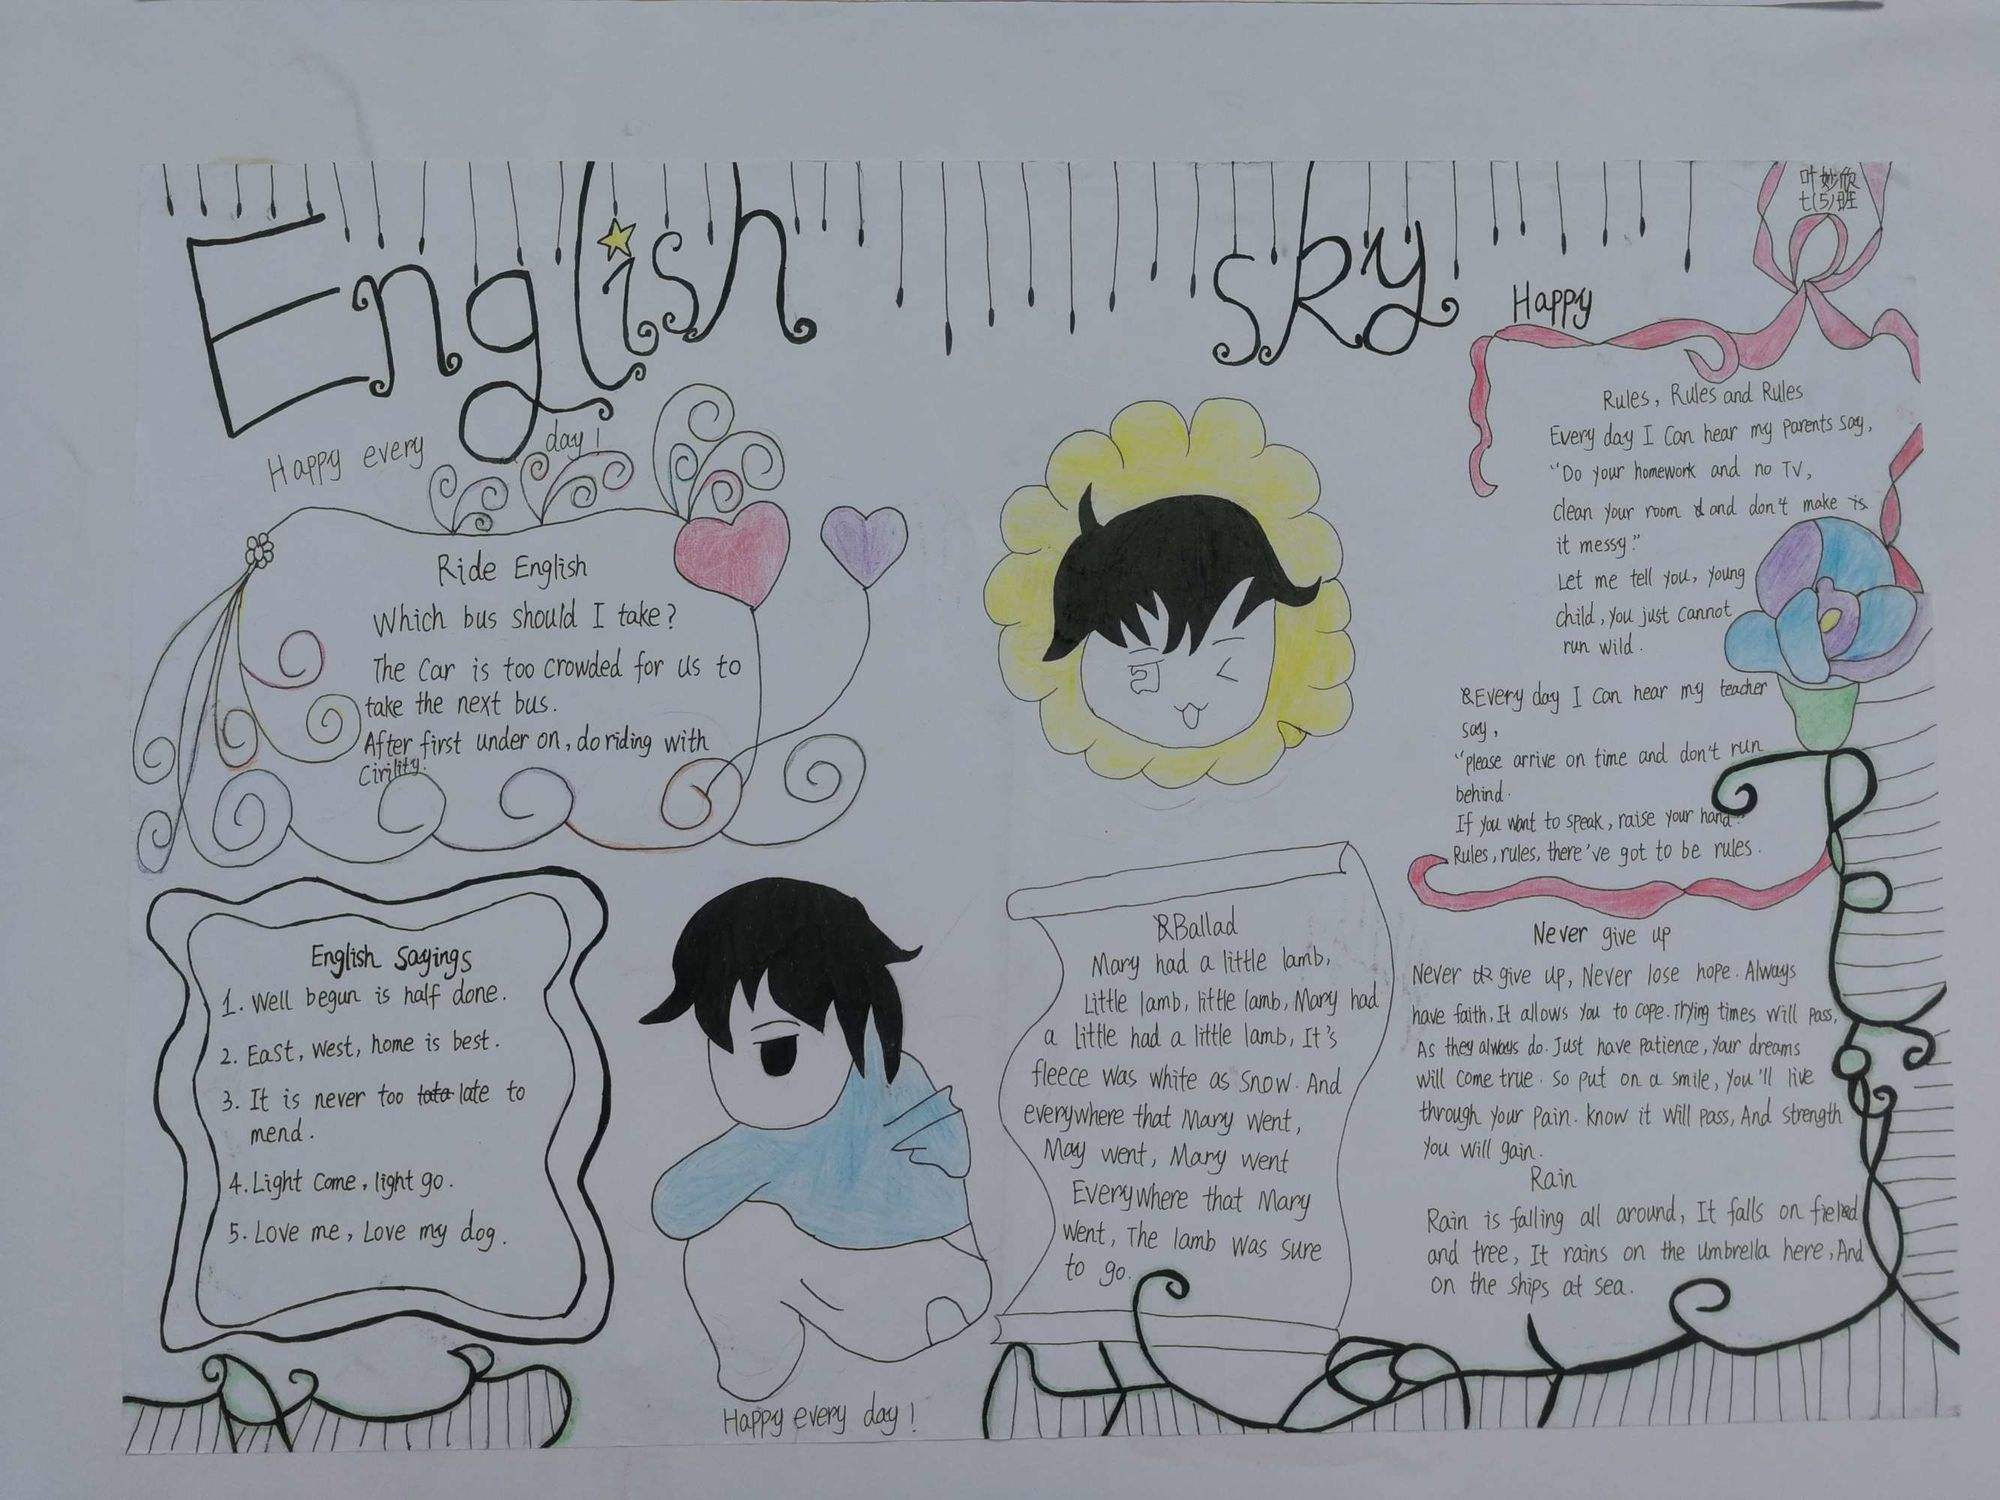 English sky
叶妙欣
七(5)班
Happy
Happy every day!
Ride English
Which bus should I take?
The Car is too crowded for us to
take the next bus.
After first under on, do riding with
Cirility!
English Sayings
1. Well begun is half done.
2. East, west, home is best.
3. It is never too late to
mend.
4. Light come, light go.
5. Love me, Love my dog.
Happy every day!
Ballad
Mary had a little lamb,
Little lamb, little lamb, Mary had
a little had a little lamb, It's
fleece was white as snow. And
everywhere that Mary went,
May went, Mary went
Everywhere that Mary
went, The lamb was sure
to go.
Rules, Rules and Rules
Every day I Can hear my parents say,
"Do your homework and no TV,
clean your room and don't make
it messy."
Let me tell you, young
child, you just cannot
run wild.
Every day I Can hear my teacher
say,
"please arrive on time and don't run
behind.
If you want to speak, raise your hand."
Rules, rules, there've got to be rules.
Never give up
Never give up, Never lose hope. Always
have faith, It allows you to cope. Trying times will pass,
As they always do. Just have patience, Your dreams
will come true. So put on a smile, You'll live
through your pain. Know it will pass, And strength
You will gain.
Rain
Rain is falling all around, It falls on field
and tree, It rains on the umbrella here, And
on the ships at sea.